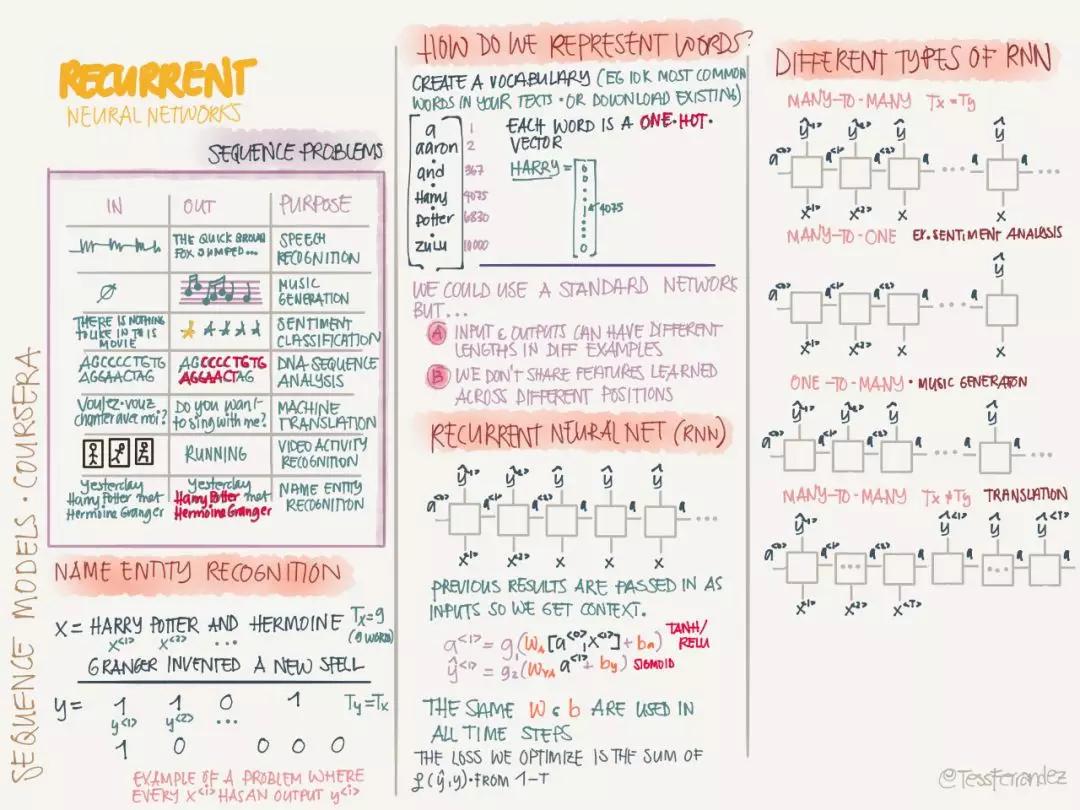 RECURRENT
NEURAL NETWORKS
SEQUENCE PROBLEMS
IN OUT PURPOSE
THE QUICK BROWN
FOX JUMPED...
SPEECH
RECOGNITION
∅
MUSIC
GENERATION
THERE IS NOTHING
TO LIKE IN THIS
MOVIE
SENTIMENT
CLASSIFICATION
AGCCCCTGTG
AGGAACTAG
AGCCCCTGTG
AGGAACTAG
DNA SEQUENCE
ANALYSIS
Voulez-vouz
chanter avec moi?
Do you want
to sing with me?
MACHINE
TRANSLATION
RUNNING
VIDEO ACTIVITY
RECOGNITION
Yesterday
Harry Potter met
Hermoine Granger
Yesterday
Harry Potter met
Hermoine Granger
NAME ENTITY
RECOGNITION
NAME ENTITY RECOGNITION
X = HARRY POTTER AND HERMOINE Tx=9
x<1> x<2> ... (9 WORDS)
GRANGER INVENTED A NEW SPELL
y = 1 1 0 1 Ty=Tx
y<1> y<2> ...
1 0 0 0 0
EXAMPLE OF A PROBLEM WHERE
EVERY X<i> HAS AN OUTPUT y<i>
SEQUENCE MODELS · COURSERA
HOW DO WE REPRESENT WORDS?
CREATE A VOCABULARY (EG 10K MOST COMMON
WORDS IN YOUR TEXTS · OR DOWNLOAD EXISTING)
a 1
aaron 2
and 367
Harry 4075
Potter 6830
zulu 10000
EACH WORD IS A ONE·HOT·
VECTOR
HARRY =
0
0
1
4075
0
WE COULD USE A STANDARD NETWORK
BUT...
A INPUT & OUTPUTS CAN HAVE DIFFERENT
LENGTHS IN DIFF EXAMPLES
B WE DON'T SHARE FEATURES LEARNED
ACROSS DIFFERENT POSITIONS
RECURRENT NEURAL NET (RNN)
ŷ<1> ŷ<2> ŷ ŷ ŷ
a<0> a<1> a<2> a a a ...
x<1> x<2> x x x
PREVIOUS RESULTS ARE PASSED IN AS
INPUTS SO WE GET CONTEXT.
a<1> = g₁(Wa[a<0>, x<1>] + ba) TANH/
RELU
ŷ<1> = g₂(Wya a<1> + by) SIGMOID
THE SAME W & b ARE USED IN
ALL TIME STEPS
THE LOSS WE OPTIMIZE IS THE SUM OF
ℒ(ŷ,y)·FROM 1-T
DIFFERENT TYPES OF RNN
MANY-TO-MANY Tx = Ty
ŷ<1> ŷ<2> ŷ ŷ
a<0> a<1> a<2> a ... a ...
x<1> x<2> x x
MANY-TO-ONE EX. SENTIMENT ANALYSIS
ŷ
a<0> a<1> a<2> a ... a
x<1> x<2> x x
ONE-TO-MANY · MUSIC GENERATION
ŷ<1> ŷ<2> ŷ ŷ
a<0> a<1> a<2> a ... a
MANY-TO-MANY Tx ≠ Ty TRANSLATION
ŷ<1> ŷ<1> ŷ ŷ<T>
a<0> a<1> a<2> a a a
x<1> x<2> x<T>
@TessFerrandez